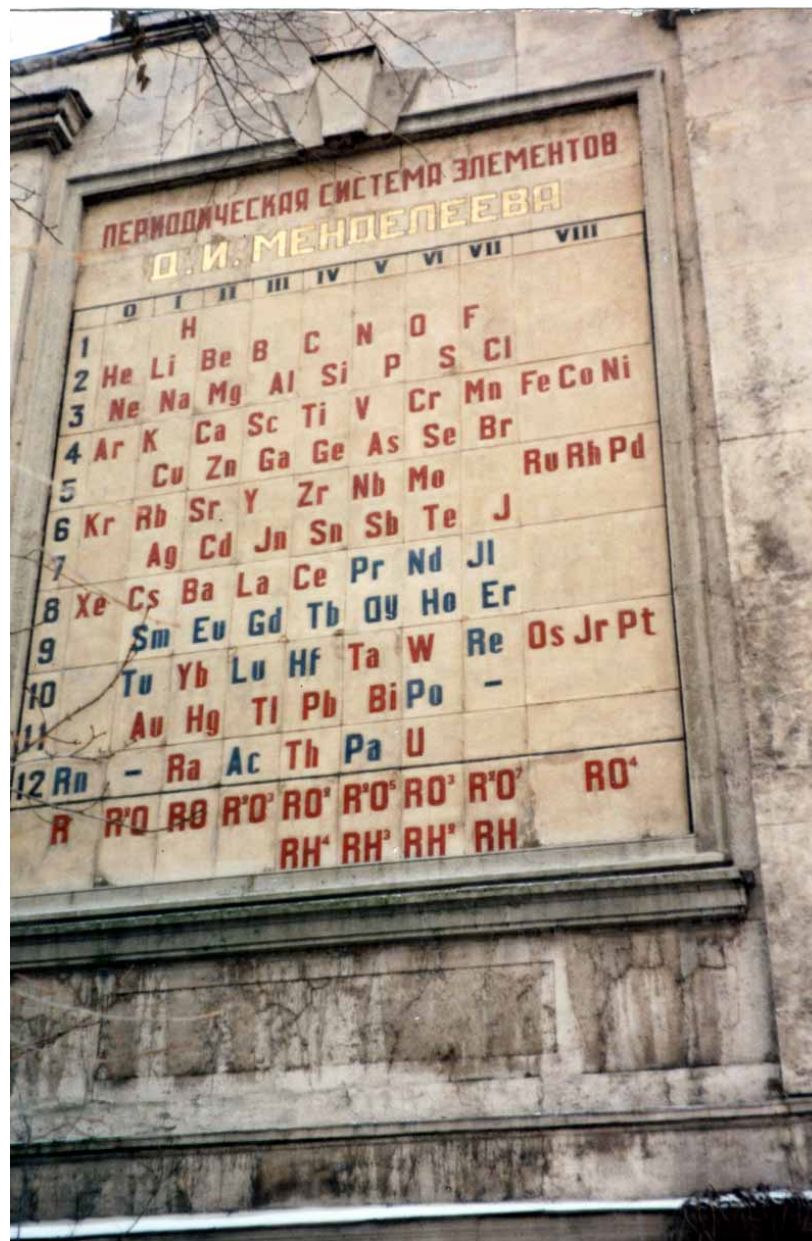 ПЕРИОДИЧЕСКАЯ СИСТЕМА ЭЛЕМЕНТОВ
Д. И. МЕНДЕЛЕЕВА
0 I II III IV V VI VII VIII
1 H
2 He Li Be B C N O F
3 Ne Na Mg Al Si P S Cl
4 Ar K Ca Sc Ti V Cr Mn Fe Co Ni
5 Cu Zn Ga Ge As Se Br
6 Kr Rb Sr Y Zr Nb Mo Ru Rh Pd
7 Ag Cd Jn Sn Sb Te J
8 Xe Cs Ba La Ce Pr Nd Jl
9 Sm Eu Gd Tb Dy Ho Er
10 Tu Yb Lu Hf Ta W Re Os Jr Pt
11 Au Hg Tl Pb Bi Po –
12 Rn – Ra Ac Th Pa U
R R²O RO R²O³ RO² R²O⁵ RO³ R²O⁷ RO⁴
RH⁴ RH³ RH² RH